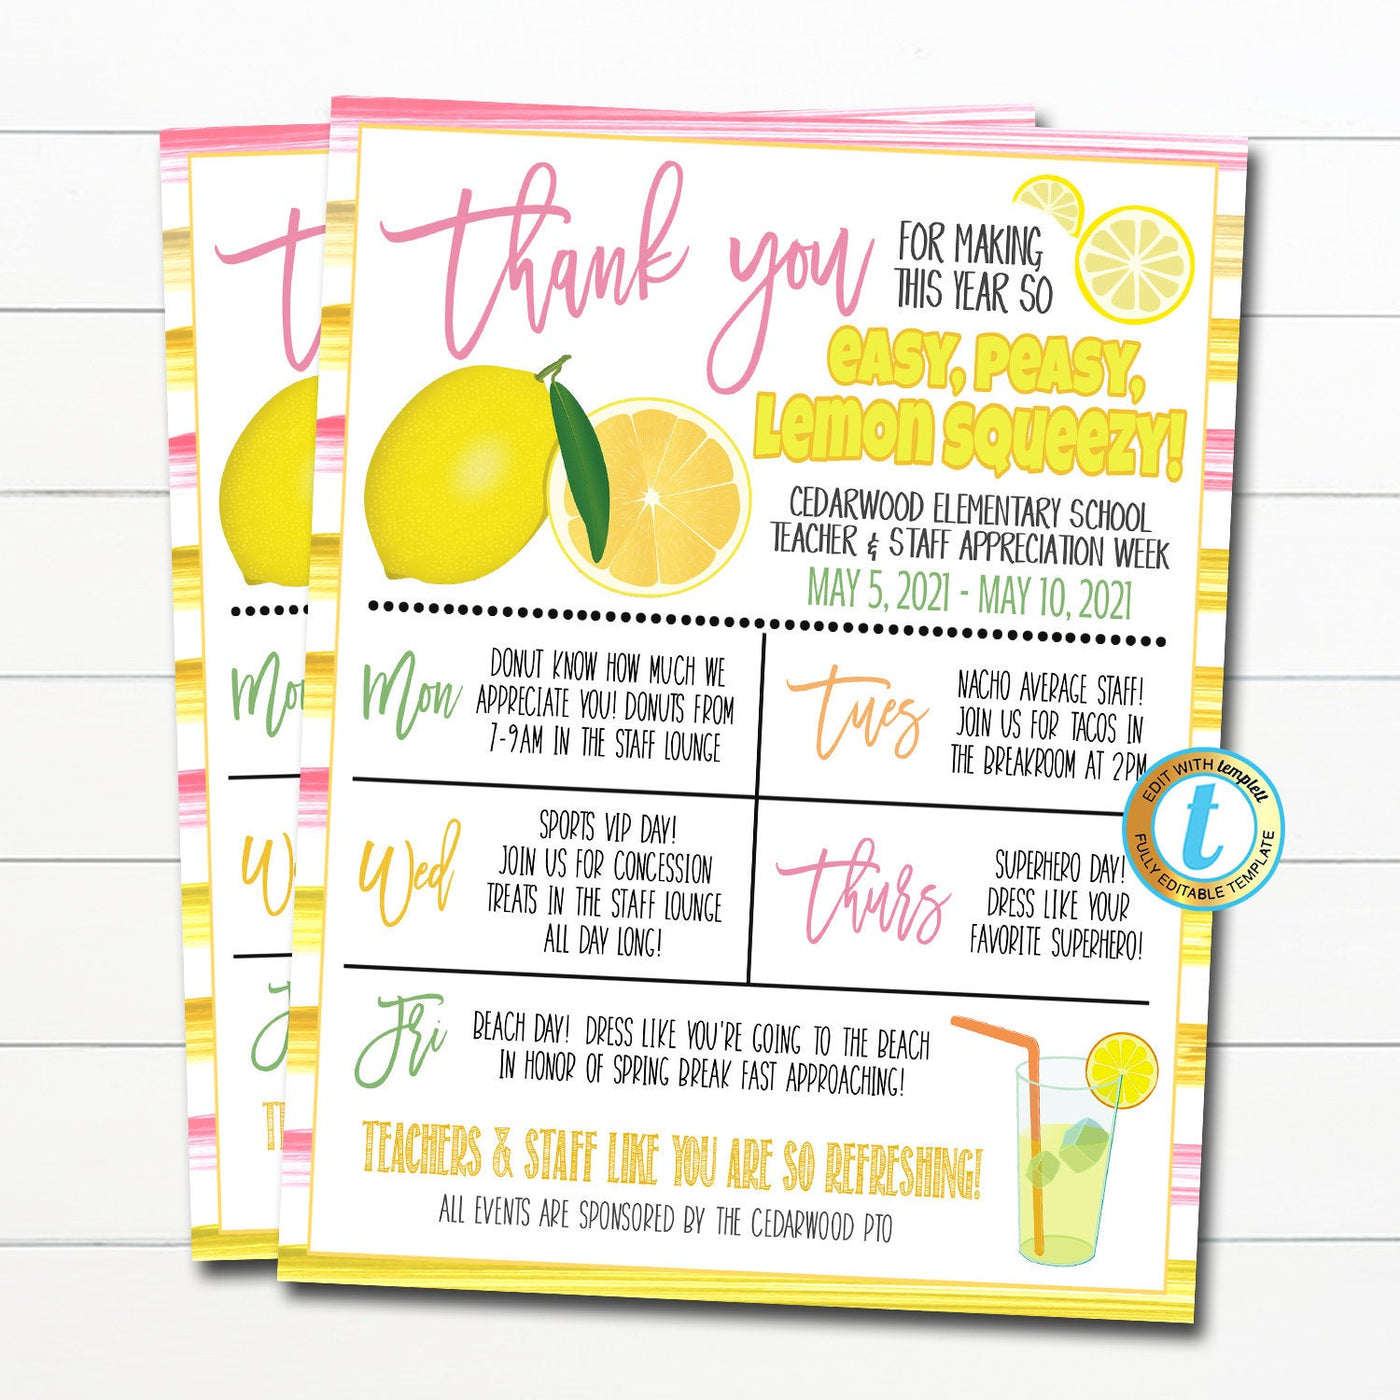 thank you
FOR MAKING
THIS YEAR SO
easy, peasy,
Lemon squeezy!
CEDARWOOD ELEMENTARY SCHOOL
TEACHER & STAFF APPRECIATION WEEK
MAY 5, 2021 - MAY 10, 2021
Mon
DONUT KNOW HOW MUCH WE
APPRECIATE YOU! DONUTS FROM
7-9AM IN THE STAFF LOUNGE
Tues
NACHO AVERAGE STAFF!
JOIN US FOR TACOS IN
THE BREAKROOM AT 2PM
EDIT WITH templett
t
FULLY EDITABLE TEMPLATE
Wed
SPORTS VIP DAY!
JOIN US FOR CONCESSION
TREATS IN THE STAFF LOUNGE
ALL DAY LONG!
thurs
SUPERHERO DAY!
DRESS LIKE YOUR
FAVORITE SUPERHERO!
Fri
BEACH DAY! DRESS LIKE YOU'RE GOING TO THE BEACH
IN HONOR OF SPRING BREAK FAST APPROACHING!
TEACHERS & STAFF LIKE YOU ARE SO REFRESHING!
ALL EVENTS ARE SPONSORED BY THE CEDARWOOD PTO